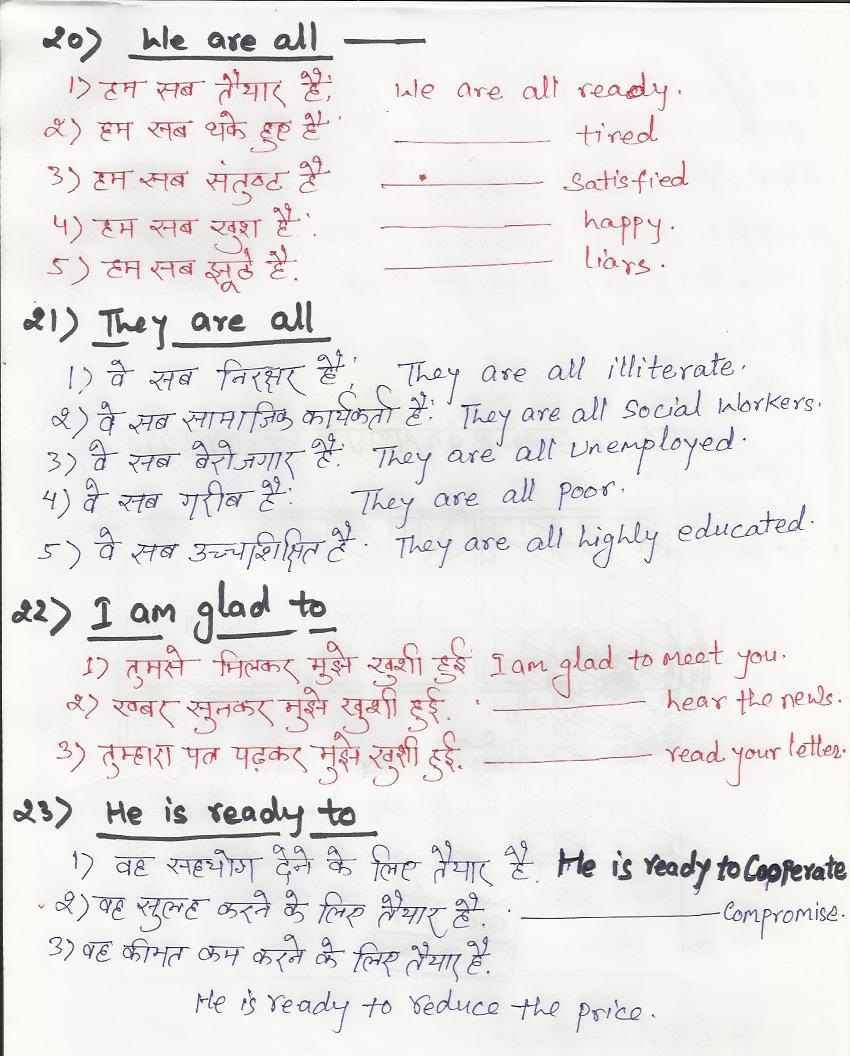 20) We are all ———
1) हम सब तैयार हैं. We are all ready.
2) हम सब थके हुए हैं ______ tired
3) हम सब संतुष्ट हैं ______ satisfied
4) हम सब खुश हैं. ______ happy.
5) हम सब झूठे हैं. ______ liars.
21) They are all
1) वे सब निरक्षर हैं. They are all illiterate.
2) वे सब सामाजिक कार्यकर्ता हैं. They are all Social Workers.
3) वे सब बेरोजगार हैं. They are all Unemployed.
4) वे सब गरीब हैं. They are all poor.
5) वे सब उच्चशिक्षित हैं. They are all highly educated.
22) I am glad to
1) तुमसे मिलकर मुझे खुशी हुई I am glad to meet you.
2) खबर सुनकर मुझे खुशी हुई. ______ hear the news.
3) तुम्हारा पत्र पढ़कर मुझे खुशी हुई. ______ read your letter.
23) He is ready to
1) वह सहयोग देने के लिए तैयार है. He is ready to Cooperate
2) वह सुलह करने के लिए तैयार है. ______ Compromise.
3) वह कीमत कम करने के लिए तैयार है.
He is ready to reduce the price.